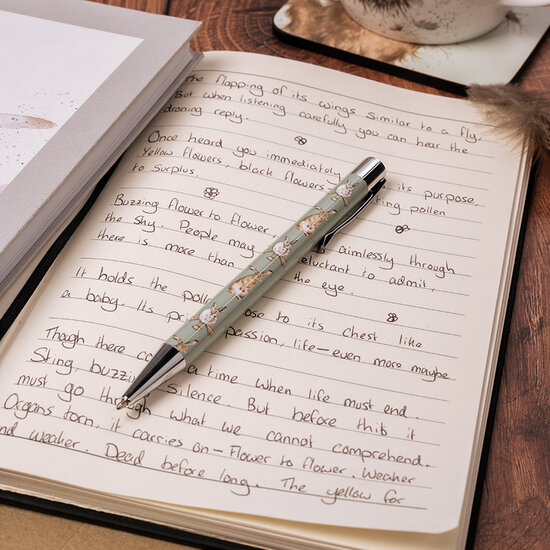 The flapping of its wings similar to a fly,
But when listening carefully you can hear the
droning reply.
Once heard you immediately its purpose,
Yellow flowers, black flowers ting pollen
to surplus.
Buzzing flower to flower, aimlessly through
the sky. People may reluctant to admit,
there is more than the eye.
It holds the pollen close to its chest like
a baby. Its pri passion, life—even more maybe.
Though there co a time when life must end.
Sting, buzzing silence. But before this it
must go through what we cannot comprehend.
Organs torn, it carries on - Flower to flower. Weaker
and weaker. Dead before long. The yellow for